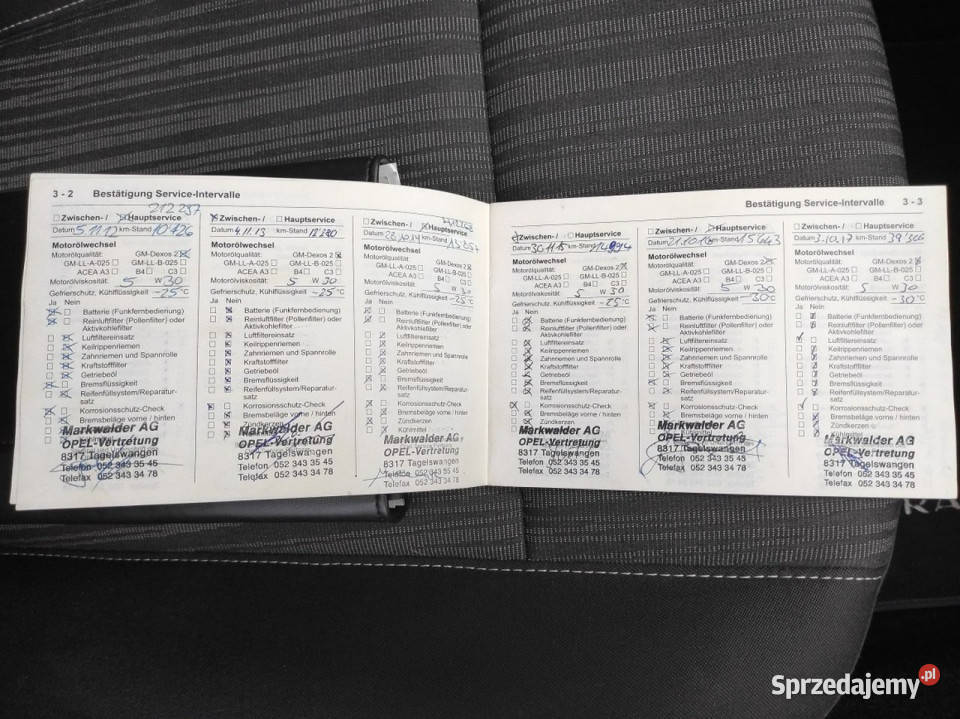 3 - 2 Bestätigung Service-Intervalle
212 237
Zwischen- / Hauptservice
Datum 5.11.12 km-Stand 10'426
Motorölwechsel
Motorölqualität: GM-Dexos 2
GM-LL-A-025 GM-LL-B-025
ACEA A3 B4 C3
Motorölviskosität: 5 W 30
Gefrierschutz, Kühlflüssigkeit -25 °C
Ja Nein
Batterie (Funkfernbedienung)
Reinluftfilter (Pollenfilter) oder
Aktivkohlefilter
Luftfiltereinsatz
Keilrippenriemen
Zahnriemen und Spannrolle
Kraftstofffilter
Getriebeöl
Bremsflüssigkeit
Reifenfüllsystem/Reparatur-
satz
Korrosionsschutz-Check
Bremsbeläge vorne / hinten
Markwalder AG
OPEL-Vertretung
8317 Tagelswangen
Telefon 052 343 35 45
Telefax 052 343 34 78
Zwischen- / Hauptservice
Datum 4.11.13 km-Stand
Motorölwechsel
Motorölqualität: GM-Dexos 2
GM-LL-A-025 GM-LL-B-025
ACEA A3 B4 C3
Motorölviskosität: 5 W 30
Gefrierschutz, Kühlflüssigkeit -25 °C
Ja Nein
Batterie (Funkfernbedienung)
Reinluftfilter (Pollenfilter) oder
Aktivkohlefilter
Luftfiltereinsatz
Keilrippenriemen
Zahnriemen und Spannrolle
Kraftstofffilter
Getriebeöl
Bremsflüssigkeit
Reifenfüllsystem/Reparatur-
satz
Korrosionsschutz-Check
Bremsbeläge vorne / hinten
Zündkerzen
Markwalder AG
OPEL-Vertretung
8317 Tagelswangen
Telefon 052 343 35 45
Telefax 052 343 34 78
Zwischen- / Hauptservice
Datum km-Stand
Motorölwechsel
Motorölqualität: GM-Dexos 2
GM-LL-A-025 GM-LL-B-025
ACEA A3 B4 C3
Motorölviskosität: 5 W 30
Gefrierschutz, Kühlflüssigkeit -25 °C
Ja Nein
Batterie (Funkfernbedienung)
Reinluftfilter (Pollenfilter) oder
Aktivkohlefilter
Luftfiltereinsatz
Keilrippenriemen
Zahnriemen und Spannrolle
Kraftstofffilter
Getriebeöl
Bremsflüssigkeit
Reifenfüllsystem/Reparatur-
satz
Korrosionsschutz-Check
Bremsbeläge vorne / hinten
Zündkerzen
Kühlmittel
Markwalder AG
OPEL-Vertretung
8317 Tagelswangen
Telefon 052 343 35 45
Telefax 052 343 34 78
Bestätigung Service-Intervalle 3 - 3
Zwischen- / Hauptservice
Datum 30.11.15 km-Stand
Motorölwechsel
Motorölqualität: GM-Dexos 2
GM-LL-A-025 GM-LL-B-025
ACEA A3 B4 C3
Motorölviskosität: 5 W 30
Gefrierschutz, Kühlflüssigkeit -25 °C
Ja Nein
Batterie (Funkfernbedienung)
Reinluftfilter (Pollenfilter) oder
Aktivkohlefilter
Luftfiltereinsatz
Keilrippenriemen
Zahnriemen und Spannrolle
Kraftstofffilter
Getriebeöl
Bremsflüssigkeit
Reifenfüllsystem/Reparatur-
satz
Korrosionsschutz-Check
Bremsbeläge vorne / hinten
Markwalder AG
OPEL-Vertretung
8317 Tagelswangen
Telefon 052 343 35 45
Telefax 052 343 34 78
Zwischen- / Hauptservice
Datum km-Stand
Motorölwechsel
Motorölqualität: GM-Dexos 2
GM-LL-A-025 GM-LL-B-025
ACEA A3 B4 C3
Motorölviskosität: 5 W 30
Gefrierschutz, Kühlflüssigkeit -30 °C
Ja Nein
Batterie (Funkfernbedienung)
Reinluftfilter (Pollenfilter) oder
Aktivkohlefilter
Luftfiltereinsatz
Keilrippenriemen
Zahnriemen und Spannrolle
Kraftstofffilter
Getriebeöl
Bremsflüssigkeit
Reifenfüllsystem/Reparatur-
satz
Korrosionsschutz-Check
Bremsbeläge vorne / hinten
Markwalder AG
OPEL-Vertretung
8317 Tagelswangen
Telefon 052 343 35 45
Telefax 052 343 34 78
Zwischen- / Hauptservice
Datum 3.10.17 km-Stand 39'306
Motorölwechsel
Motorölqualität: GM-Dexos 2
GM-LL-A-025 GM-LL-B-025
ACEA A3 B4 C3
Motorölviskosität: 5 W 30
Gefrierschutz, Kühlflüssigkeit -30 °C
Ja Nein
Batterie (Funkfernbedienung)
Reinluftfilter (Pollenfilter) oder
Aktivkohlefilter
Luftfiltereinsatz
Keilrippenriemen
Zahnriemen und Spannrolle
Kraftstofffilter
Getriebeöl
Bremsflüssigkeit
Reifenfüllsystem/Reparatur-
satz
Korrosionsschutz-Check
Bremsbeläge vorne / hinten
Zündkerzen
Markwalder AG
OPEL-Vertretung
8317 Tagelswangen
Telefon 052 343 35 45
Telefax 052 343 34 78
Sprzedajemy.pl